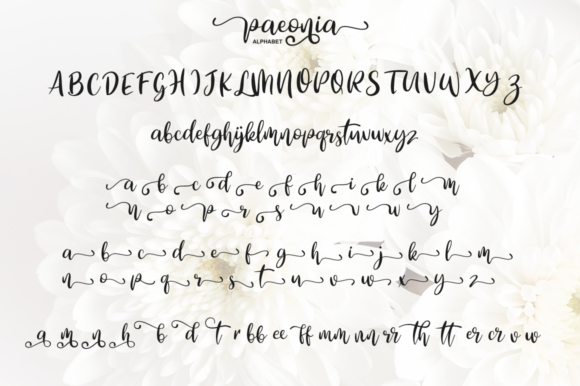 paeonia
ALPHABET
ABCDEFGHIJKLMNOPQRSTUVWXYZ
abcdefghijklmnopqrstuvwxyz
a b c d e f h i k l m
n o p r s u v w y
a b c d e f g h i j k l m
n o p q r s t u v w x y z
a m n h b d t r bb ee ff mm nn rr th tt er cr v w